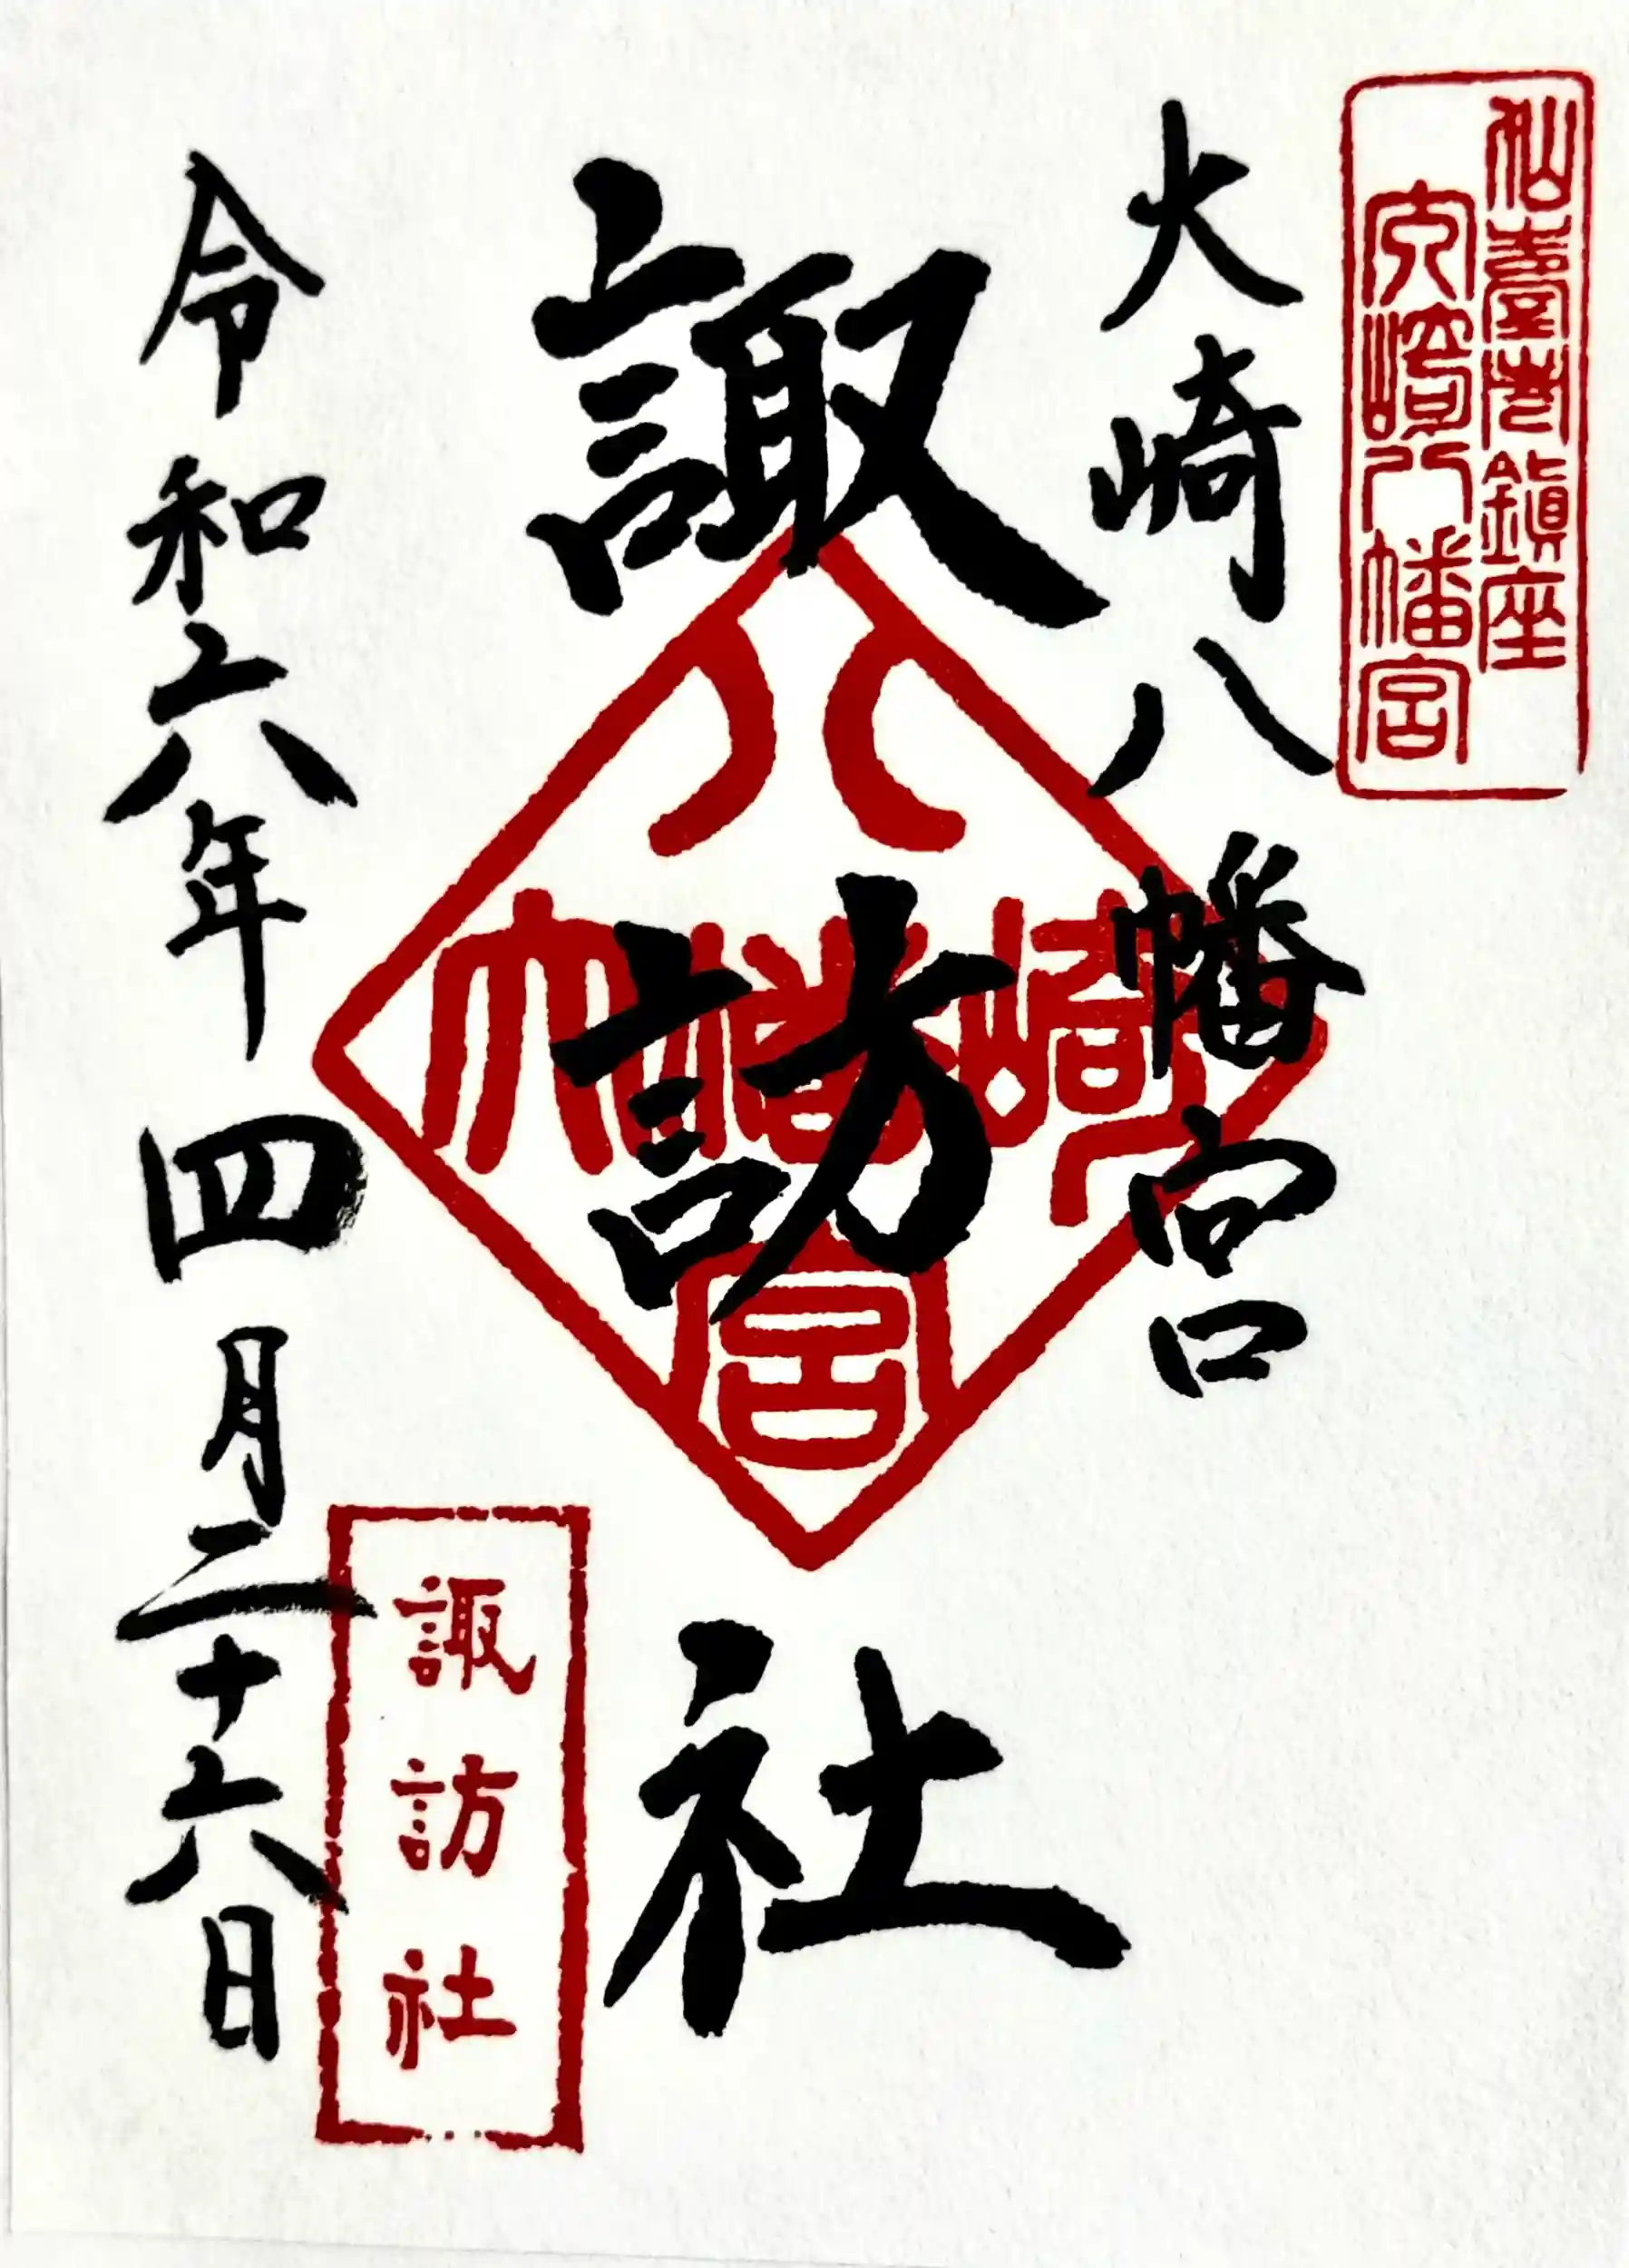 仙臺市鎮座
大崎八幡宮
大崎八幡宮
諏訪社
八
大幡崎
宮
諏訪社
令和六年四月二十六日